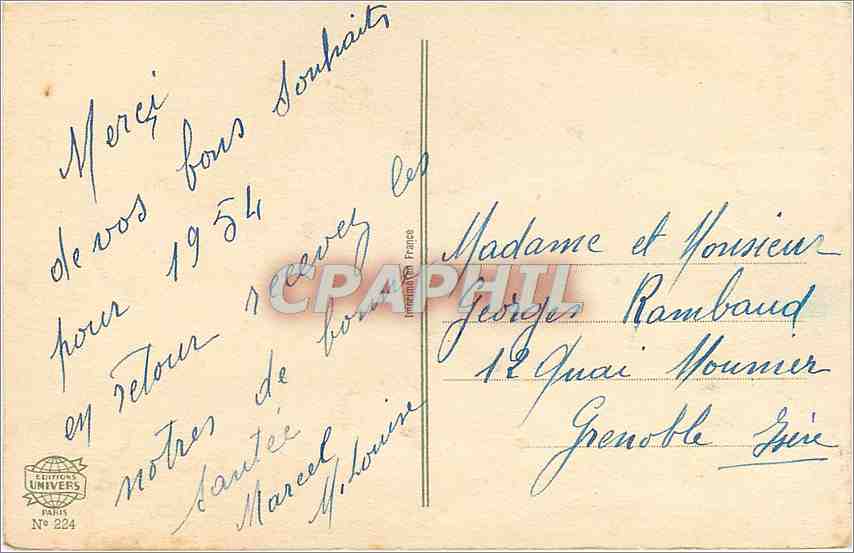 Merci
de vos bons souhaits
pour 1954
en retour recevez les
notres de bonne
santée
Marcel
M. Louise
Imprimé en France
Madame et Monsieur
Georges Rambaud
12 Quai Mounier
Grenoble Isère
EDITIONS
UNIVERS
PARIS
N° 224
CPAPHIL